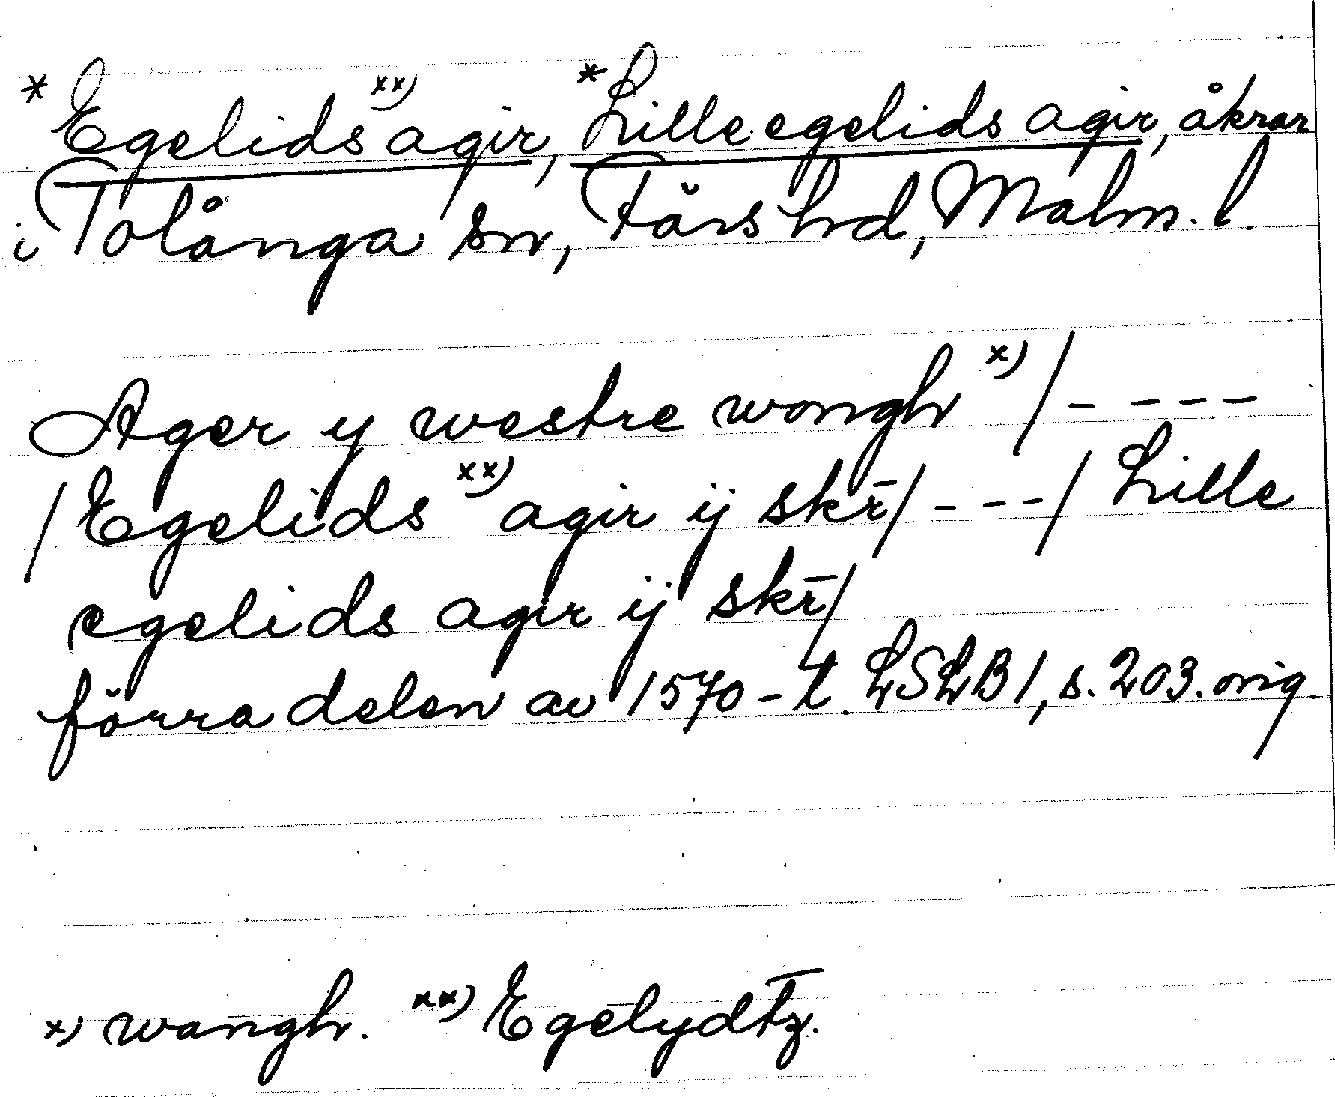 *Egelids xx) agir, *Lille egelids agir, åkrar
i Tolånga sn, Färs hd, Malm. l.
Ager y westre wongh x) /----
/Egelids xx) agir ij skr̄/---/ Lille
egelids agir ij skr̄/
förra delen av 1570-t. LSLB 1, s. 203. orig.
x) wangh. xx) Egelydtz.